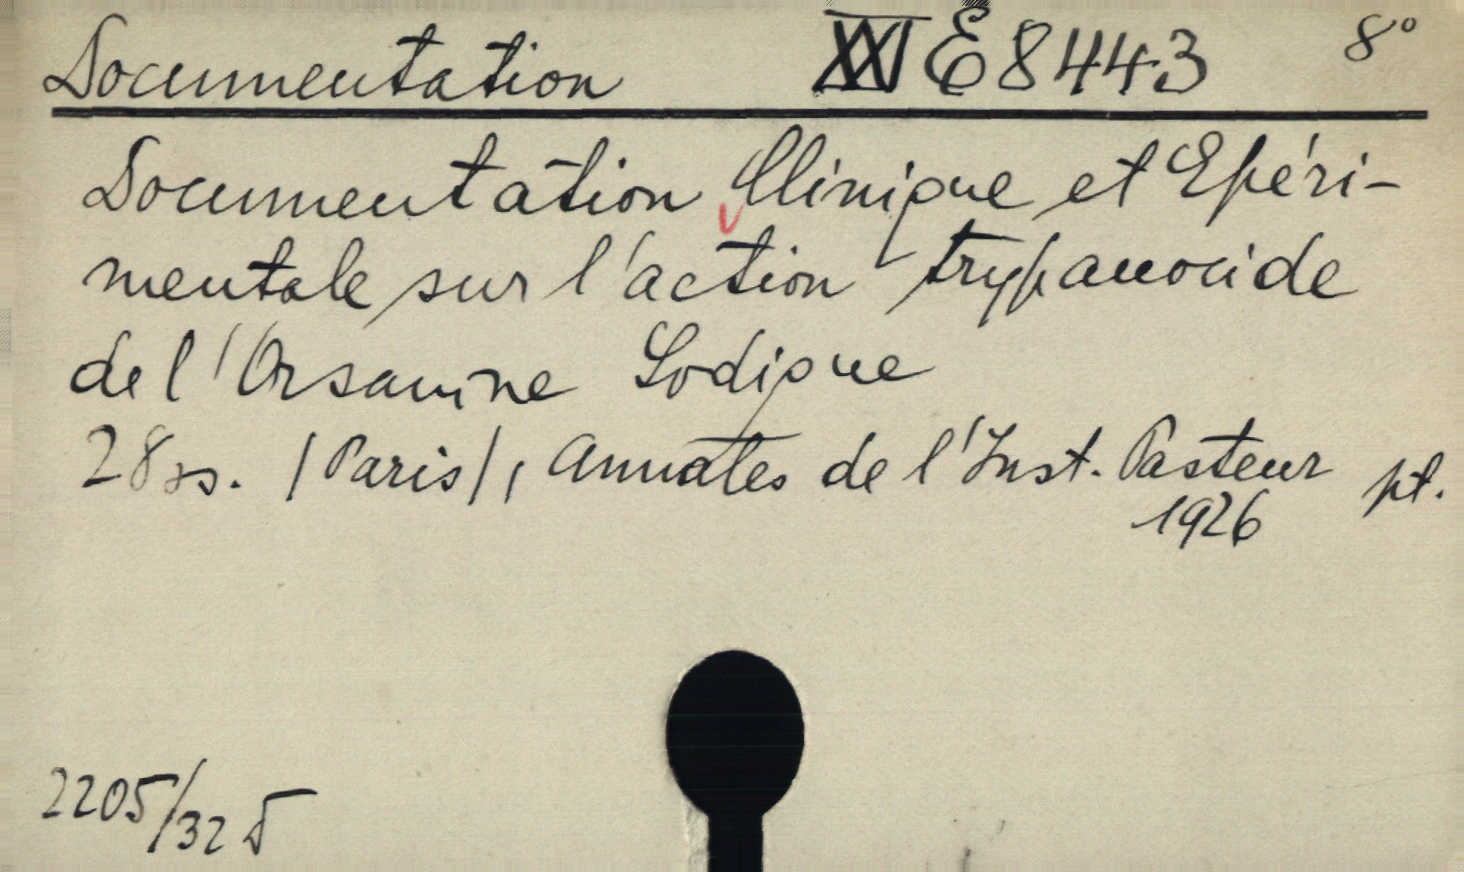 Documentation XXI E 8443 8°
Documentation Clinique et Epéri-
mentale sur l'action trypanocide
de l'Orsanine Sodique
28 ss. /Paris/, Annales de l'Inst. Pasteur pt.
1926
2205/32 D